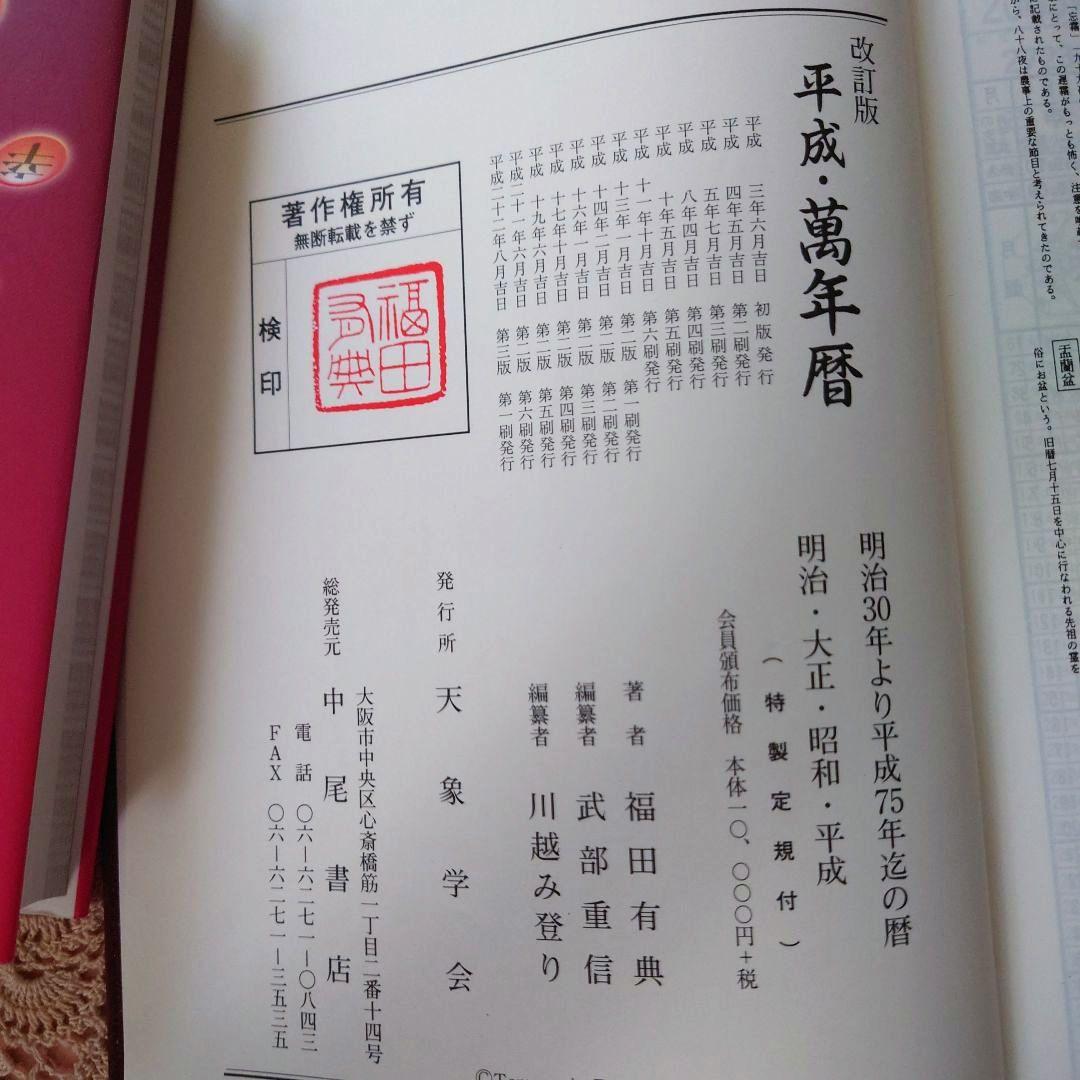 に記載されたものである。
から、八十八夜は農事上の重要な節目と考えられてきたのである。
盂蘭盆
俗にお盆という。旧暦七月十五日を中心に行なわれる先祖の霊を
改訂版
平成・萬年暦
平成 三年六月吉日 初版発行
平成 四年五月吉日 第二刷発行
平成 五年七月吉日 第三刷発行
平成 八年四月吉日 第四刷発行
平成 十年五月吉日 第五刷発行
平成 十一年十月吉日 第六刷発行
平成 十三年一月吉日 第二版 第一刷発行
平成 十四年二月吉日 第二版 第二刷発行
平成 十六年一月吉日 第二版 第三刷発行
平成 十七年十月吉日 第二版 第四刷発行
平成 十九年六月吉日 第二版 第五刷発行
平成二十一年六月吉日 第二版 第六刷発行
平成二十二年八月吉日 第三版 第一刷発行
著作権所有
無断転載を禁ず
検印
福田
有典
明治30年より平成75年迄の暦
明治・大正・昭和・平成
(特製定規付)
会員頒布価格 本体一〇、〇〇〇円+税
著者 福田有典
編纂者 武部重信
編纂者 川越み登り
発行所 天象学会
大阪市中央区心斎橋筋一丁目二番十四号
総発売元 中尾書店
電話 〇六―六二七一―〇八四三
FAX 〇六―六二七一―三五三五